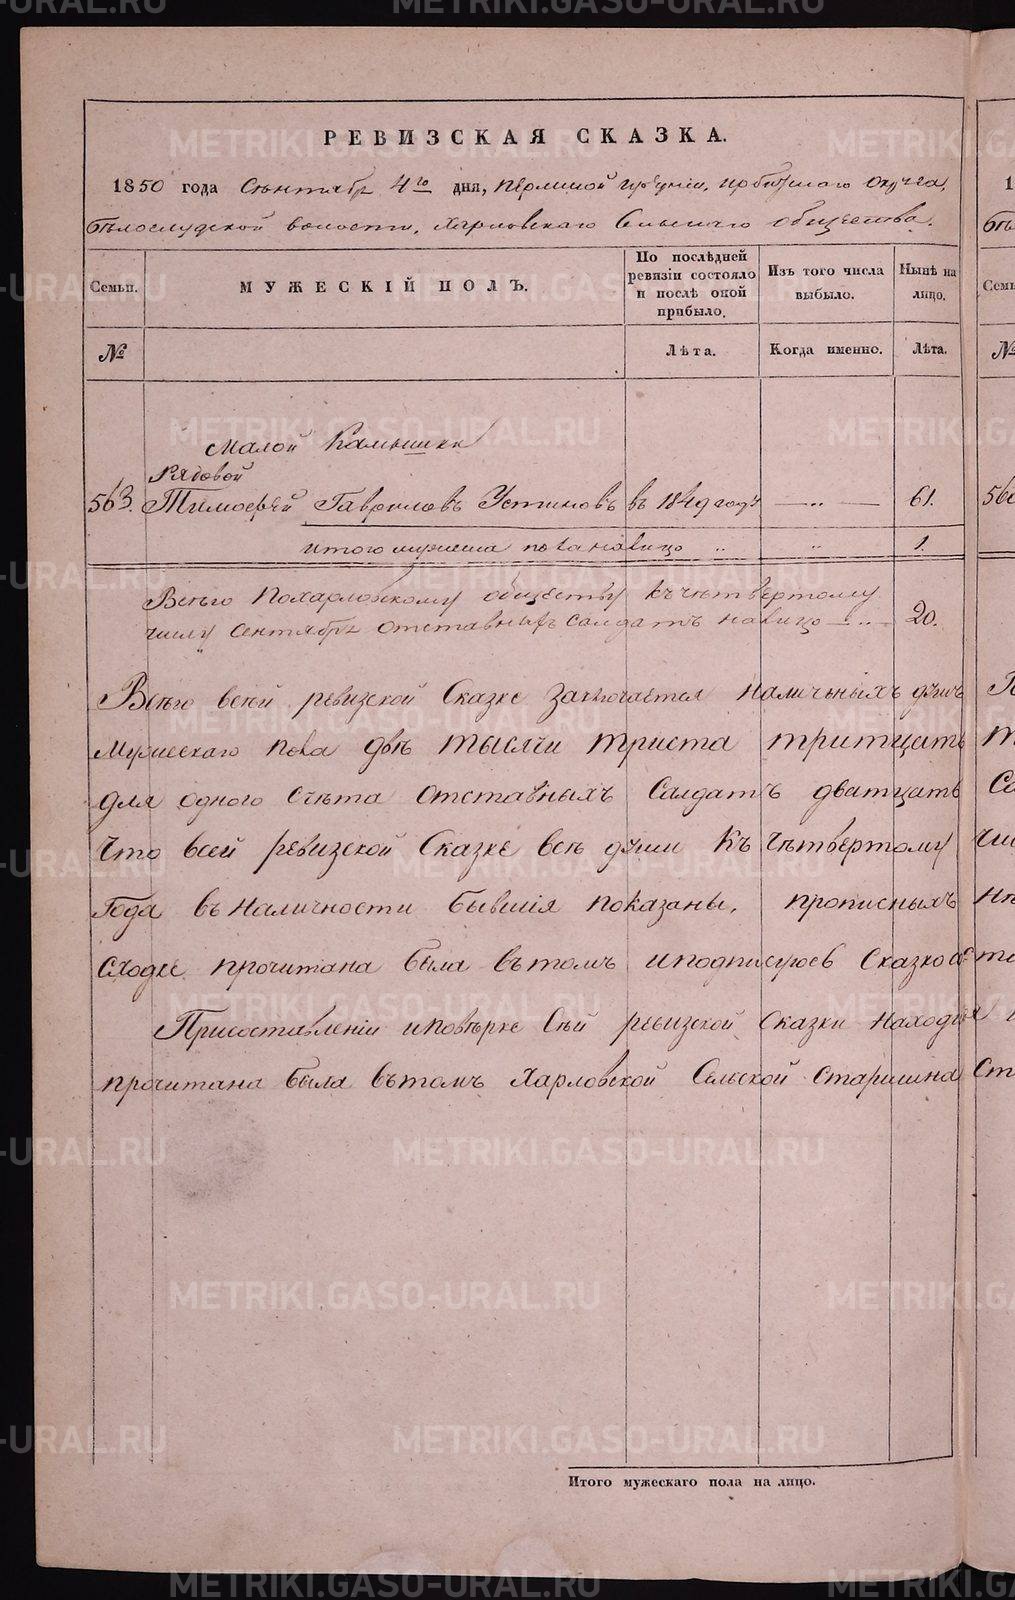 РЕВИЗСКАЯ СКАЗКА.
1850 года Сентября 4го дня, Пермской губерніи, Ирбитскаго Округа,
Бѣлослудской волости, Харловскаго Сельскаго общества.
Семьи.
МУЖЕСКІЙ ПОЛЪ.
По послѣдней ревизіи состояло и послѣ оной прибыло.
Изъ того числа выбыло.
Нынѣ на лицо.
№
Лѣта.
Когда именно.
Лѣта.
Малой Камышки
Рядовой
563. Тимофей Гавриловъ Устиновъ въ 1849 году — „ — 61.
итого мужеска пола налицо „ „ 1.
Всего по Харловскому обществу къ четвертому
числу Сентября отставныхъ солдатъ налицо — „ — 20.
Всего въ сей ревизской Сказке заключается наличныхъ душъ
Мужескаго пола двѣ тысячи триста тритцать
для одного счѣта отставныхъ Солдатъ дватцать
Что всей ревизской Сказке всѣ души къ Четвертому
года въ наличности бывшія показаны, прописныхъ
сходке прочитана была въ томъ и подписуюсь Сказко
При составленіи и повѣрке сей ревизской Сказки находи
прочитана была въ томъ Харловской Сельской Старшина
Итого мужескаго пола на лицо.
METRIKI.GASO-URAL.RU